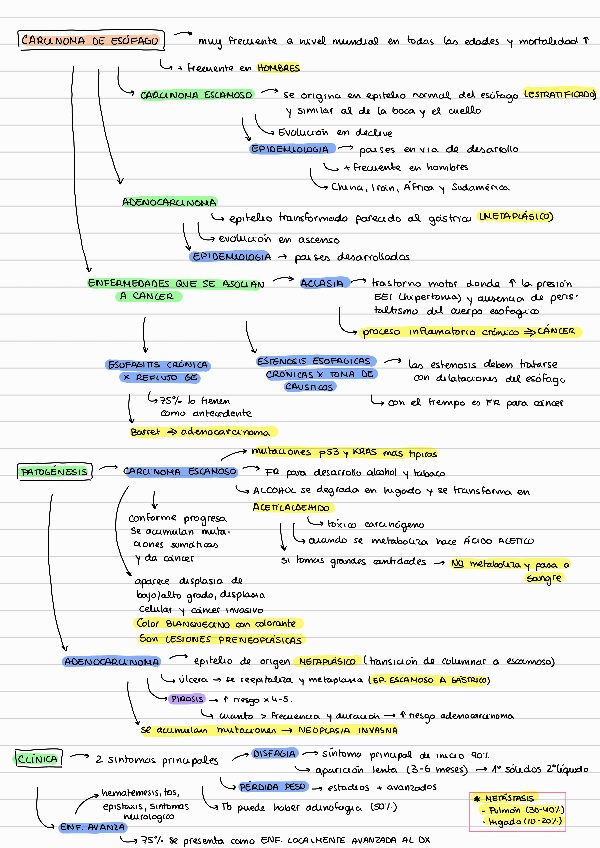 CARCINOMA DE ESÓFAGO → muy frecuente a nivel mundial en todas las edades y mortalidad ↑
+ frecuente en HOMBRES
CARCINOMA ESCAMOSO → se origina en epitelio normal del esófago (ESTRATIFICADO)
y similar al de la boca y el cuello
Evolución en declive
EPIDEMIOLOGIA → países en vía de desarrollo
+ frecuente en hombres
China, Irán, África y Sudamérica
ADENOCARCINOMA
epitelio transformado parecido al gástrico (METAPLÁSICO)
evolución en ascenso
EPIDEMIOLOGIA → países desarrollados
ENFERMEDADES QUE SE ASOCIAN → ACLASIA → trastorno motor donde ↑ la presión
A CANCER
EEI (hipertonía) y ausencia de peris-
taltismo del cuerpo esofágico
proceso inflamatorio crónico ⇒ CÁNCER
ESOFAGITIS CRÓNICA
X REFLUJO GE
ESTENOSIS ESOFAGICAS → las estenosis deben tratarse
CRÓNICAS X TOMA DE
con dilataciones del esófago
CAUSTICOS
75% lo tienen
como antecedente
con el tiempo es FR para cáncer
Barret ⇒ adenocarcinoma
mutaciones p53 y KRAS mas típicas
PATOGÉNESIS → CARCINOMA ESCAMOSO → FR para desarrollo alcohol y tabaco
ALCOHOL se degrada en hígado y se transforma en
ACETILALDEHIDO
conforme progresa
se acumulan muta-
ciones somáticas
y da cáncer
tóxico carcinógeno
cuando se metaboliza hace ÁCIDO ACETICO
si tomas grandes cantidades → NO metaboliza y pasa a
sangre
aparece displasia de
bajo/alto grado, displasia
celular y cáncer invasivo
Color BLANQUECINO con colorante
Son LESIONES PRENEOPLÁSICAS
ADENOCARCINOMA → epitelio de origen METAPLÁSICO (transición de columnar a escamoso)
úlcera → se reepiteliza y metaplasia (EP. ESCAMOSO A GÁSTRICO)
PIROSIS → ↑ riesgo x4-5.
cuanto > frecuencia y duración → ↑ riesgo adenocarcinoma
se acumulan mutaciones → NEOPLASIA INVASIVA
CLÍNICA → 2 síntomas principales → DISFAGIA → síntoma principal de inicio 90%
aparición lenta (3-6 meses) → 1º sólidos 2º líquido
PÉRDIDA PESO → estadios + avanzados
Tb puede haber adinofagia (50%)
hematemesis, tos,
epistaxis, síntomas
neurológico
ENF. AVANZA
75% se presenta como ENF. LOCALMENTE AVANZADA AL DX
* METÁSTASIS
- Pulmón (30-40%)
- Hígado (10-20%)